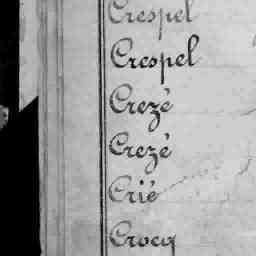 Crespel
Crespel
Crezé
Crezé
Crié
Crocq